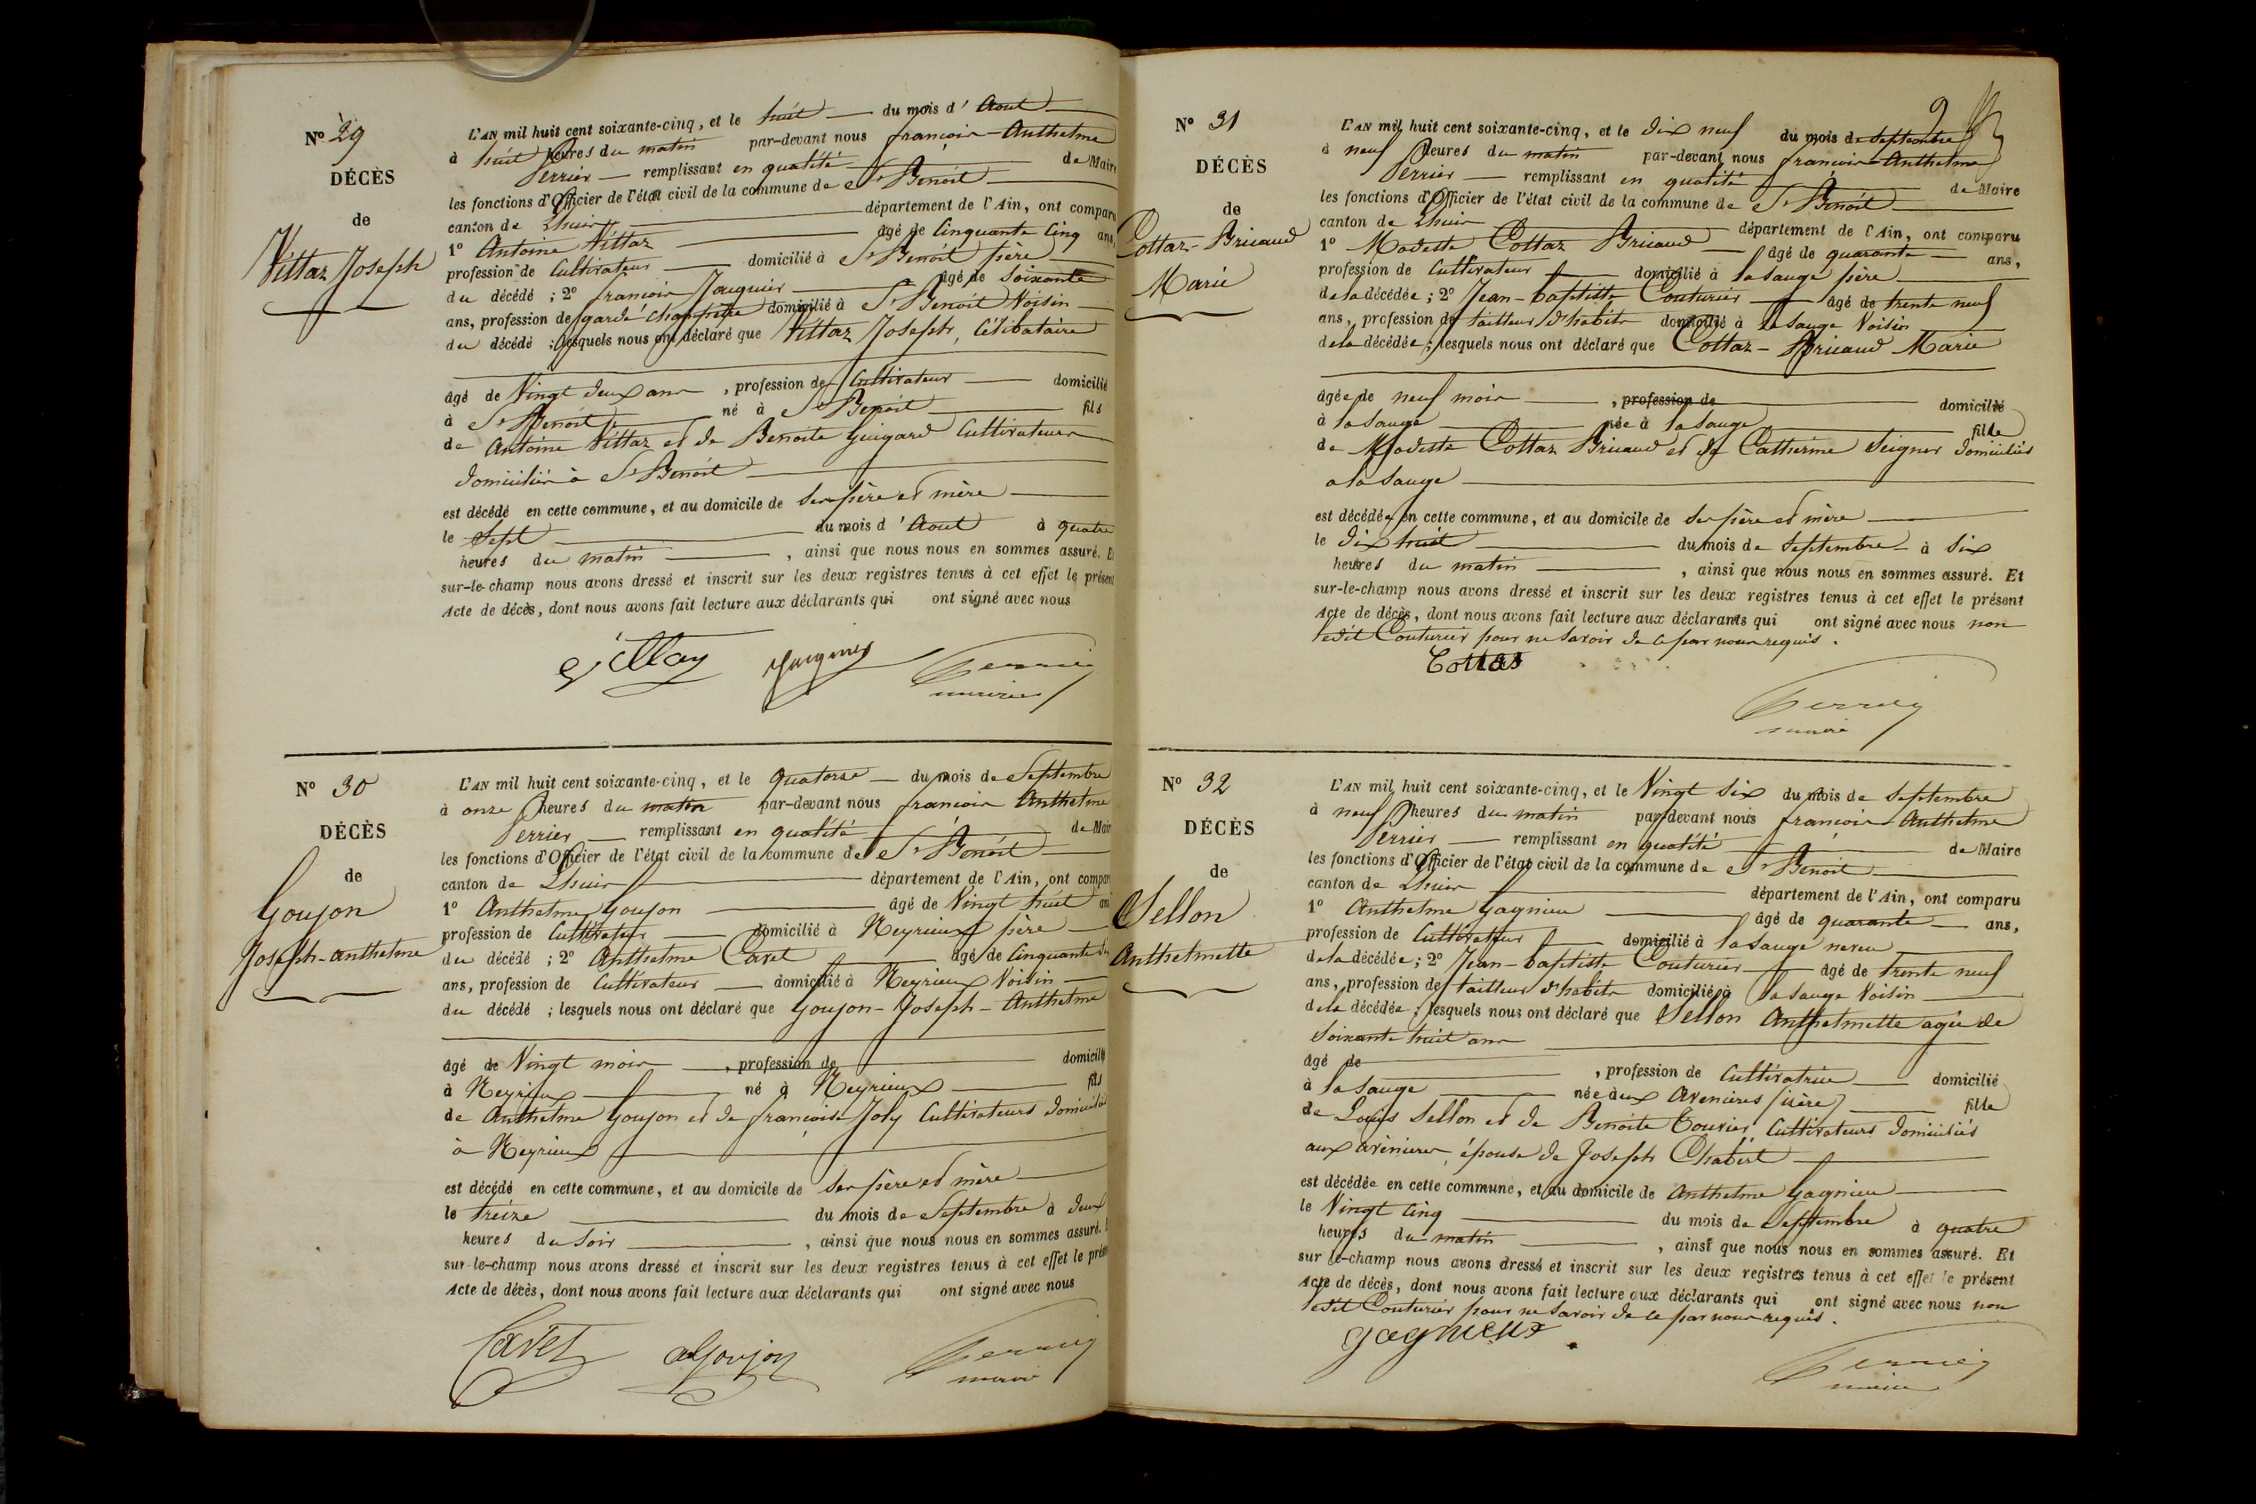 N° 29
DÉCÈS
de
Vittaz Joseph
L'AN mil huit cent soixante-cinq, et le huit du mois d'Aout
à huit heures du matin par-devant nous françois-Anthelme
Perrier remplissant en qualité de Maire
les fonctions d'Officier de l'état civil de la commune de St Benoit
canton de Lhuis département de l'Ain, ont comparu
1° Antoine Vittaz âgé de Cinquante Cinq ans,
profession de Cultivateur domicilié à St Benoit père
du décédé ; 2° françois Jauguier âgé de soixante
ans, profession de garde champêtre domicilié à St Benoit Voisin
du décédé ; lesquels nous ont déclaré que Vittaz Joseph, Célibataire
âgé de Vingt deux ans , profession de Cultivateur domicilié
à St Benoit né à St Benoit fils
de Antoine Vittaz et de Benoite Guigard Cultivateurs
domiciliés à St Benoit
est décédé en cette commune, et au domicile de ses père et mère
le Sept du mois d'Aout à quatre
heures du matin , ainsi que nous nous en sommes assuré. Et
sur-le-champ nous avons dressé et inscrit sur les deux registres tenus à cet effet le présent
Acte de décès, dont nous avons fait lecture aux déclarants qui ont signé avec nous
N° 30
DÉCÈS
de
Goujon
Joseph-anthelme
L'AN mil huit cent soixante-cinq, et le quatorze du mois de Septembre
à onze heures du matin par-devant nous françois Anthelme
Perrier remplissant en qualité de Mair
les fonctions d'Officier de l'état civil de la commune de St Benoit
canton de Lhuis département de l'Ain, ont compar
1° Anthelme Goujon âgé de Vingt huit ans
profession de Cultivateur domicilié à Neyrieux père
du décédé ; 2° Anthelme Cavet âgé de Cinquante
ans, profession de Cultivateur domicilié à Neyrieux Voisin
du décédé ; lesquels nous ont déclaré que Goujon-Joseph-Anthelme
âgé de Vingt mois , profession de domicilié
à Neyrieux né à Neyrieux fils
de Anthelme Goujon et de françoise Joly Cultivateurs domiciliés
à Neyrieux
est décédé en cette commune, et au domicile de ses père et mère
le treize du mois de Septembre à deux
heures du soir , ainsi que nous nous en sommes assuré.
sur-le-champ nous avons dressé et inscrit sur les deux registres tenus à cet effet le prése
Acte de décès, dont nous avons fait lecture aux déclarants qui ont signé avec nous
Cavet aGoujon Perrier
maire
9
N° 31
DÉCÈS
de
Cottaz-Bricaud
Marie
L'AN mil huit cent soixante-cinq, et le dix neuf du mois de Septembre
à neuf heures du matin par-devant nous françois Anthelme
Perrier remplissant en qualité de Maire
les fonctions d'Officier de l'état civil de la commune de St Benoit
canton de Lhuis département de l'Ain, ont comparu
1° Modeste Cottaz Bricaud âgé de quarante ans,
profession de Cultivateur domicilié à la sauge père
de la décédée ; 2° Jean-baptiste Couturier âgé de trente neuf
ans, profession de tailleur d'habits domicilié à la sauge Voisin
de la décédée ; lesquels nous ont déclaré que Cottaz-Bricaud Marie
âgée de neuf mois , profession de domicilié
à la sauge née à la sauge fille
de Modeste Cottaz Bricaud et de Catherine Seigner domiciliés
a la sauge
est décédée en cette commune, et au domicile de ses père et mère
le dix huit du mois de Septembre à six
heures du matin , ainsi que nous nous en sommes assuré. Et
sur-le-champ nous avons dressé et inscrit sur les deux registres tenus à cet effet le présent
Acte de décès, dont nous avons fait lecture aux déclarants qui ont signé avec nous non
ledit Couturier pour ne savoir de ce par nous requis.
Cottas
Perrier
maire
N° 32
DÉCÈS
de
Sellon
Anthelmette
L'AN mil huit cent soixante-cinq, et le Vingt six du mois de Septembre
à neuf heures du matin par-devant nous françois Anthelme
Perrier remplissant en qualité de Maire
les fonctions d'Officier de l'état civil de la commune de St Benoit
canton de Lhuis département de l'Ain, ont comparu
1° Anthelme Gagnieu âgé de quarante ans,
profession de Cultivateur domicilié à la sauge neveu
de la décédée ; 2° Jean-baptiste Couturier âgé de trente neuf
ans, profession de tailleur d'habits domicilié à la sauge Voisin
de la décédée ; lesquels nous ont déclaré que Sellon Anthelmette agée de
soixante huit ans
âgé de , profession de Cultivatrice domicilié
à la sauge née aux Avenières (isère) fille
de Louis Sellon et de Benoite Touvier Cultivateurs domiciliés
aux avenieres, épouse de Joseph Chabert
est décédée en cette commune, et au domicile de Anthelme Gagnieu
le Vingt cinq du mois de Septembre à quatre
heures du matin , ainsi que nous nous en sommes assuré. Et
sur-le-champ nous avons dressé et inscrit sur les deux registres tenus à cet effet le présent
Acte de décès, dont nous avons fait lecture aux déclarants qui ont signé avec nous non
ledit Couturier pour ne savoir de ce par nous requis.
gagnieux
Perrier
maire